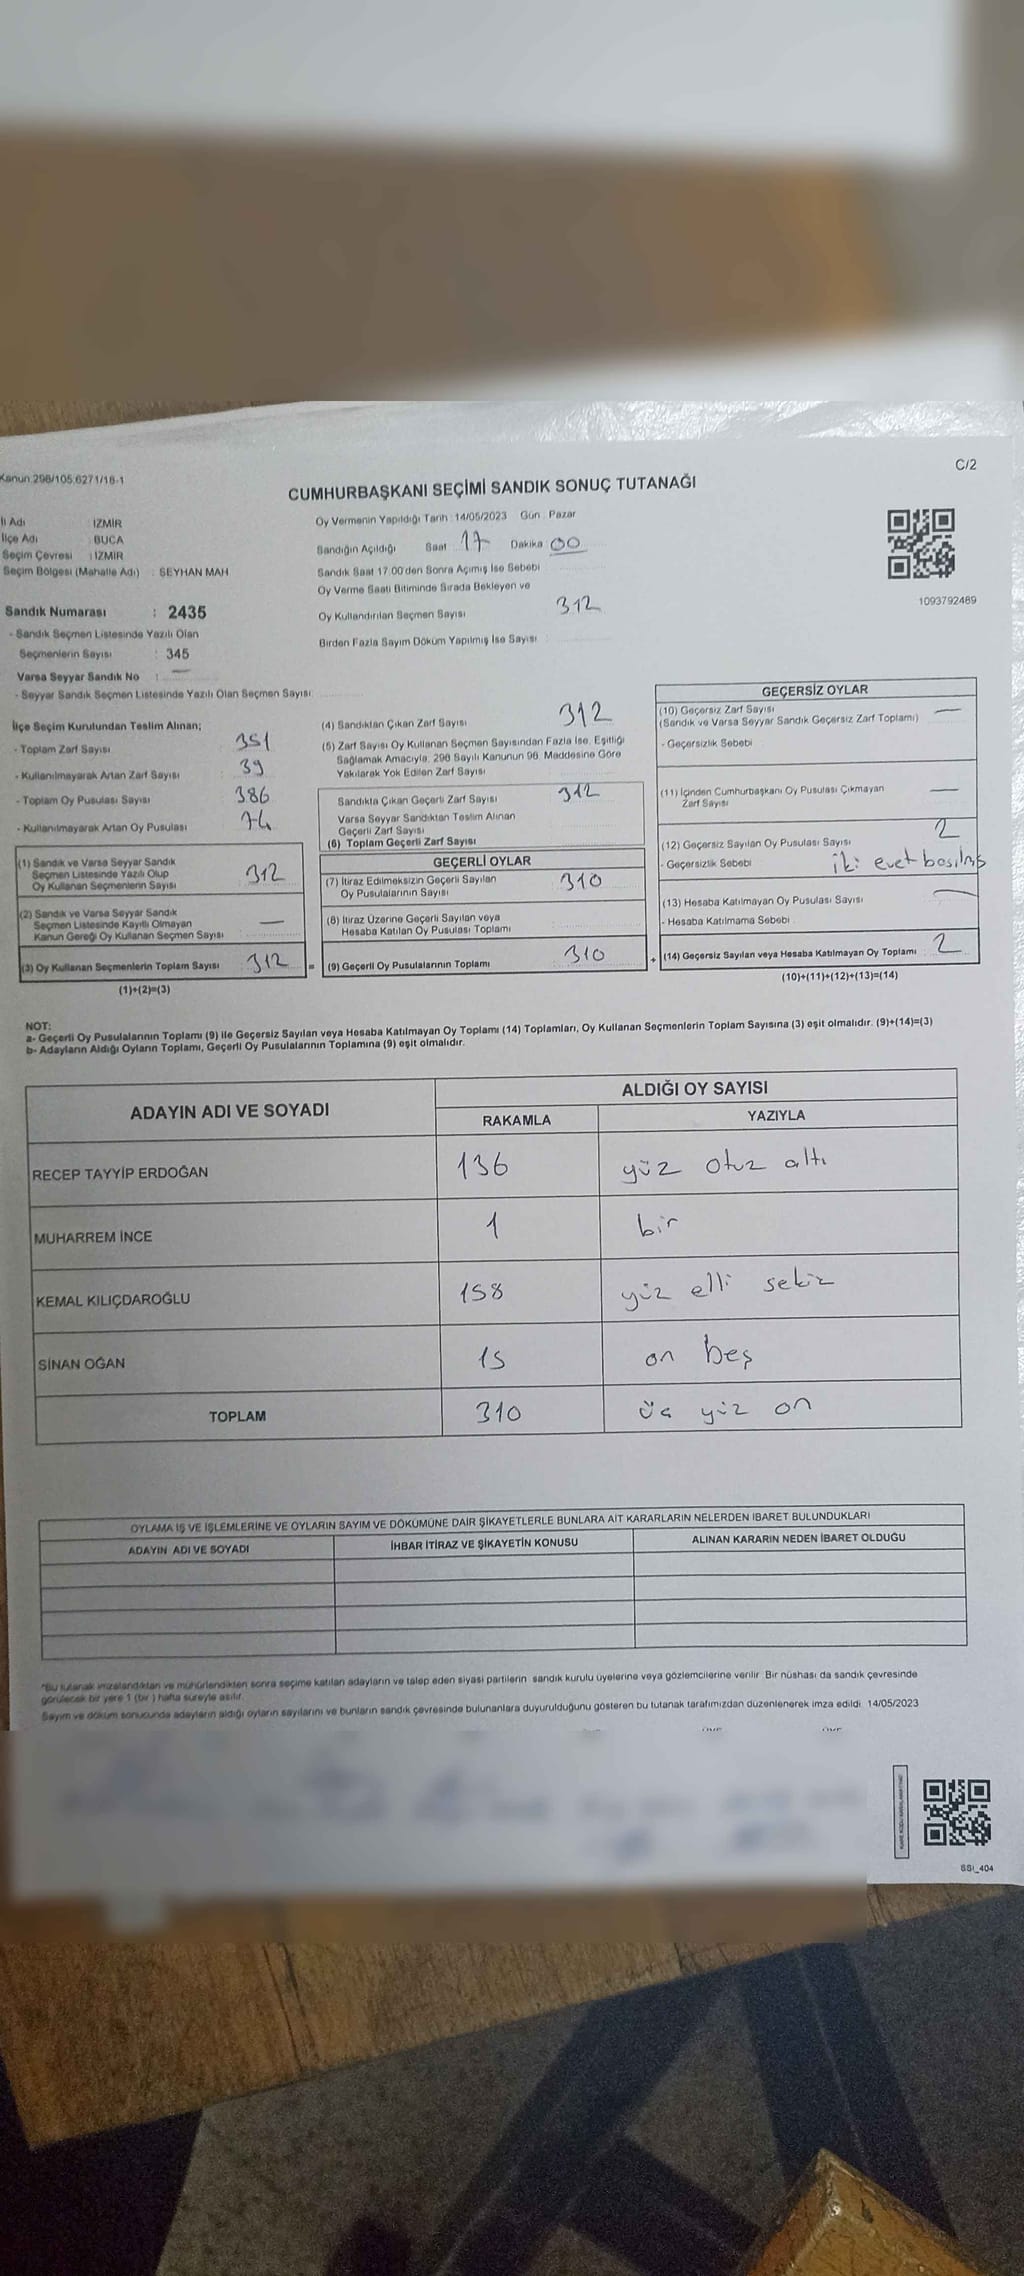 Kanun:298/105,6271/18-1
C/2
CUMHURBAŞKANI SEÇİMİ SANDIK SONUÇ TUTANAĞI
İl Adı : İZMİR
İlçe Adı : BUCA
Seçim Çevresi : İZMİR
Seçim Bölgesi (Mahalle Adı) : SEYHAN MAH
Sandık Numarası : 2435
- Sandık Seçmen Listesinde Yazılı Olan
Seçmenlerin Sayısı : 345
Varsa Seyyar Sandık No : —
- Seyyar Sandık Seçmen Listesinde Yazılı Olan Seçmen Sayısı:
Oy Vermenin Yapıldığı Tarih : 14/05/2023 Gün : Pazar
Sandığın Açıldığı Saat : 17 Dakika : 00
Sandık Saat 17:00'den Sonra Açımış İse Sebebi :
Oy Verme Saati Bitiminde Sırada Bekleyen ve
Oy Kullandırılan Seçmen Sayısı : 312
Birden Fazla Sayım Döküm Yapılmış İse Sayısı :
1093792489
İlçe Seçim Kurulundan Teslim Alınan;
- Toplam Zarf Sayısı : 351
- Kullanılmayarak Artan Zarf Sayısı : 39
- Toplam Oy Pusulası Sayısı : 386
- Kullanılmayarak Artan Oy Pusulası : 74
(1) Sandık ve Varsa Seyyar Sandık
Seçmen Listesinde Yazılı Olup
Oy Kullanan Seçmenlerin Sayısı : 312
(2) Sandık ve Varsa Seyyar Sandık
Seçmen Listesinde Kayıtlı Olmayan
Kanun Gereği Oy Kullanan Seçmen Sayısı : —
(3) Oy Kullanan Seçmenlerin Toplam Sayısı : 312 =
(1)+(2)=(3)
(4) Sandıktan Çıkan Zarf Sayısı : 312
(5) Zarf Sayısı Oy Kullanan Seçmen Sayısından Fazla İse, Eşitliği
Sağlamak Amacıyla, 298 Sayılı Kanunun 98. Maddesine Göre
Yakılarak Yok Edilen Zarf Sayısı :
Sandıkta Çıkan Geçerli Zarf Sayısı : 312
Varsa Seyyar Sandıktan Teslim Alınan
Geçerli Zarf Sayısı :
(6) Toplam Geçerli Zarf Sayısı :
GEÇERLİ OYLAR
(7) İtiraz Edilmeksizin Geçerli Sayılan
Oy Pusulalarının Sayısı : 310
(8) İtiraz Üzerine Geçerli Sayılan veya
Hesaba Katılan Oy Pusulası Toplamı :
(9) Geçerli Oy Pusulalarının Toplamı : 310 +
GEÇERSİZ OYLAR
(10) Geçersiz Zarf Sayısı : —
(Sandık ve Varsa Seyyar Sandık Geçersiz Zarf Toplamı)
- Geçersizlik Sebebi :
(11) İçinden Cumhurbaşkanı Oy Pusulası Çıkmayan
Zarf Sayısı : —
(12) Geçersiz Sayılan Oy Pusulası Sayısı : 2
- Geçersizlik Sebebi : iki evet basılmış
(13) Hesaba Katılmayan Oy Pusulası Sayısı : —
- Hesaba Katılmama Sebebi :
(14) Geçersiz Sayılan veya Hesaba Katılmayan Oy Toplamı : 2
(10)+(11)+(12)+(13)=(14)
NOT:
a- Geçerli Oy Pusulalarının Toplamı (9) ile Geçersiz Sayılan veya Hesaba Katılmayan Oy Toplamı (14) Toplamları, Oy Kullanan Seçmenlerin Toplam Sayısına (3) eşit olmalıdır. (9)+(14)=(3)
b- Adayların Aldığı Oyların Toplamı, Geçerli Oy Pusulalarının Toplamına (9) eşit olmalıdır.
ADAYIN ADI VE SOYADI ALDIĞI OY SAYISI
RAKAMLA YAZIYLA
RECEP TAYYİP ERDOĞAN 136 yüz otuz altı
MUHARREM İNCE 1 bir
KEMAL KILIÇDAROĞLU 158 yüz elli sekiz
SİNAN OĞAN 15 on beş
TOPLAM 310 üç yüz on
OYLAMA İŞ VE İŞLEMLERİNE VE OYLARIN SAYIM VE DÖKÜMÜNE DAİR ŞİKAYETLERLE BUNLARA AİT KARARLARIN NELERDEN İBARET BULUNDUKLARI
ADAYIN ADI VE SOYADI İHBAR İTİRAZ VE ŞİKAYETİN KONUSU ALINAN KARARIN NEDEN İBARET OLDUĞU
*Bu tutanak imzalandıktan ve mühürlendikten sonra seçime katılan adayların ve talep eden siyasi partilerin sandık kurulu üyelerine veya gözlemcilerine verilir. Bir nüshası da sandık çevresinde
görülecek bir yere 1 (bir ) hafta süreyle asılır.
Sayım ve döküm sonucunda adayların aldığı oyların sayılarını ve bunların sandık çevresinde bulunanlara duyurulduğunu gösteren bu tutanak tarafımızdan düzenlenerek imza edildi. 14/05/2023
SSİ_404